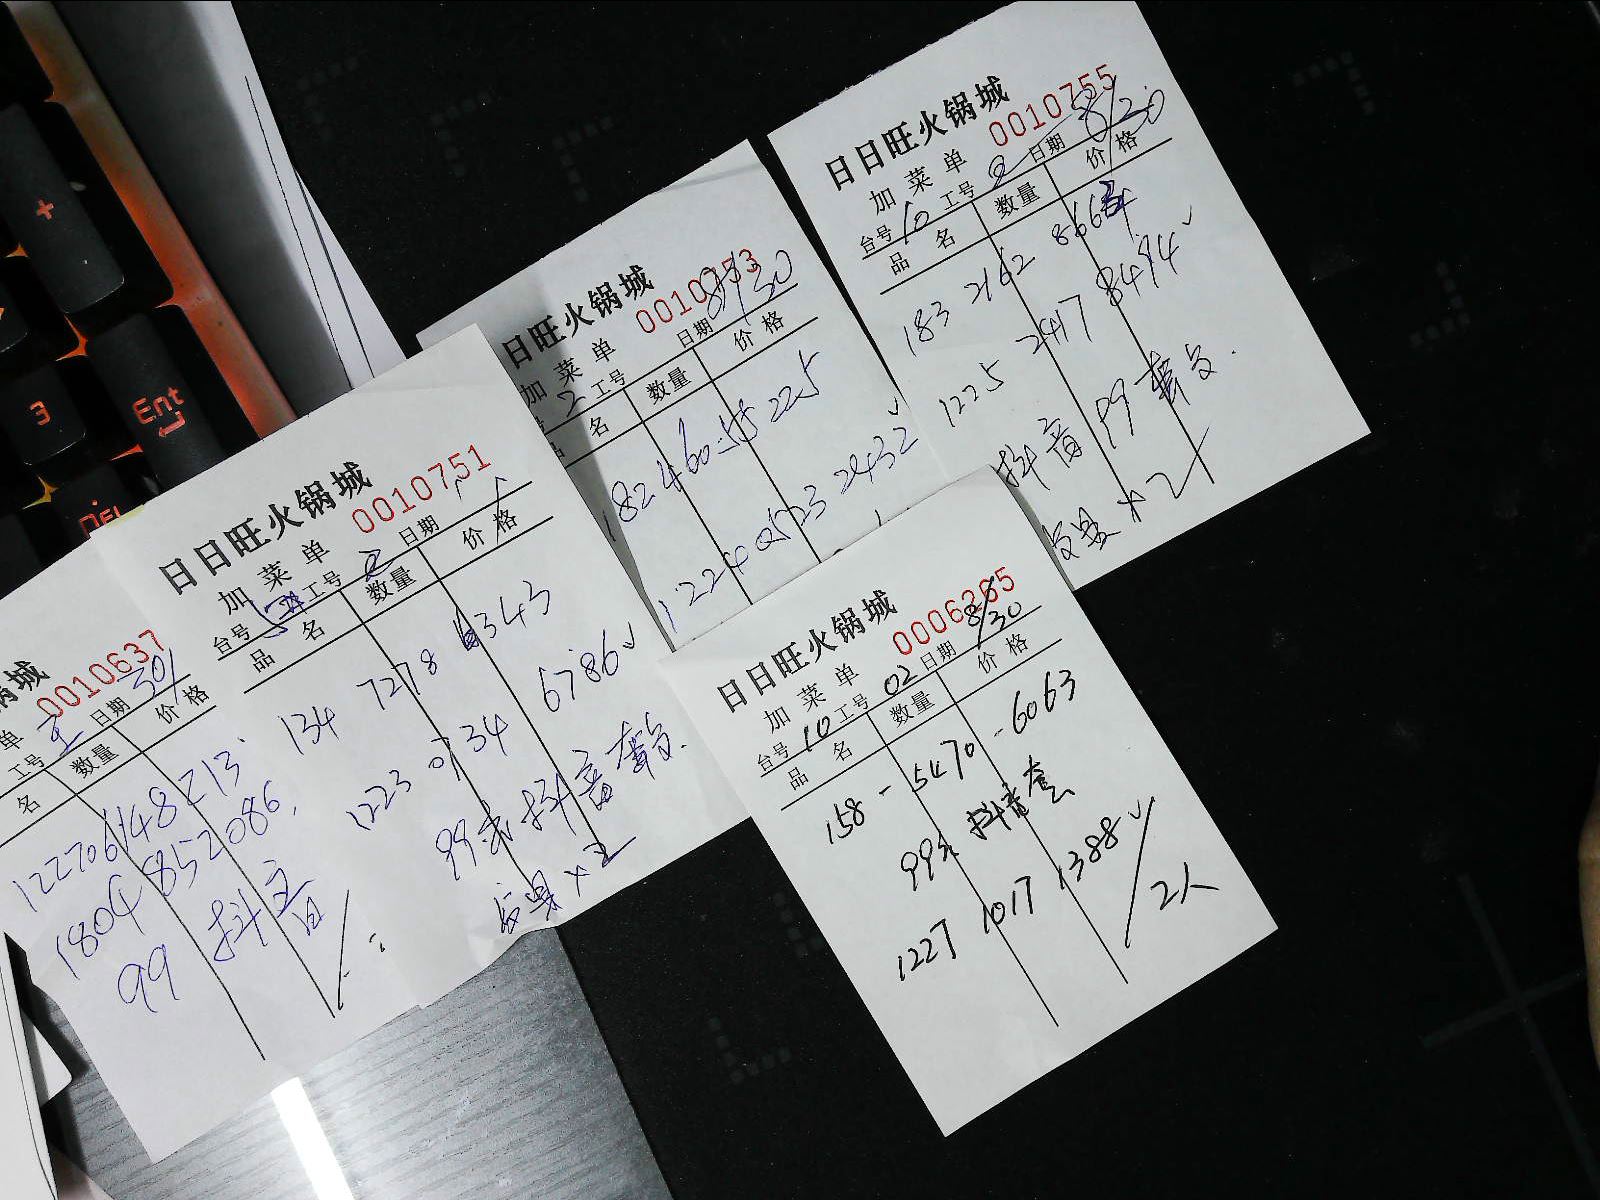 锅城
0010637
单
工号 日期 30/
名 数量 价格
12270614 8213
1804 852086
99 抖音
日日旺火锅城
0010751
加菜单
台号 工号 2 日期
品名 数量 价格
134 7278 6343
1223 0734 6786
99元抖音套
×2
日旺火锅城
0010753
加菜单
号 2 工号 日期 8/30
名 数量 价格
182 460 225
1224 0523 2432
日日旺火锅城
0010755
加菜单
台号 10 工号 2 日期 8/30
品名 数量 价格
183 2162 866
1225 2417 8494
抖音 99 套
×2
日日旺火锅城
0006265
加菜单
台号 10 工号 02 日期 8/30
品名 数量 价格
158-5470-6063
99元 抖音套
1227 1017 1388
2人
+
3
Ent
Del